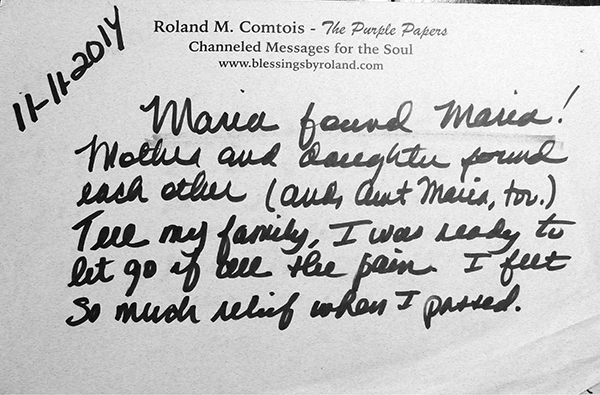 11-11-2014
Roland M. Comtois - The Purple Papers
Channeled Messages for the Soul
www.blessingsbyroland.com
Maria found Maria!
Mother and daughter found
each other (and, Aunt Maria, too.)
Tell my family, I was ready to
let go of all the pain. I felt
so much relief when I passed.